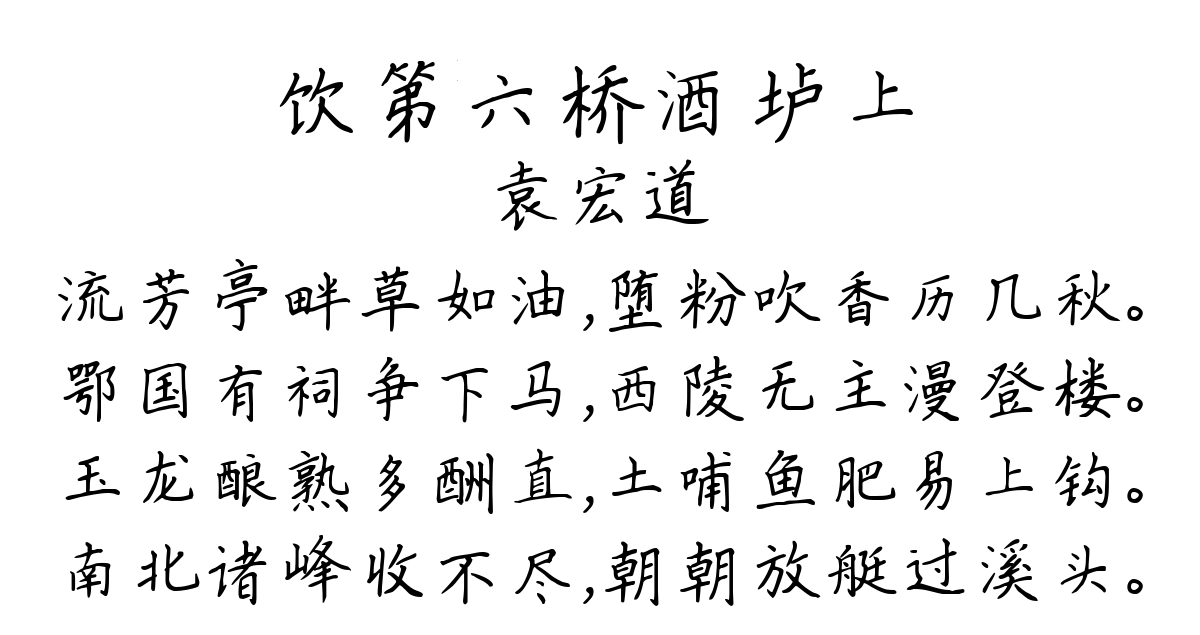 饮第六桥酒垆上
袁宏道
流芳亭畔草如油,堕粉吹香历几秋。
鄂国有祠争下马,西陵无主漫登楼。
玉龙酿熟多酬直,土哺鱼肥易上钩。
南北诸峰收不尽,朝朝放艇过溪头。